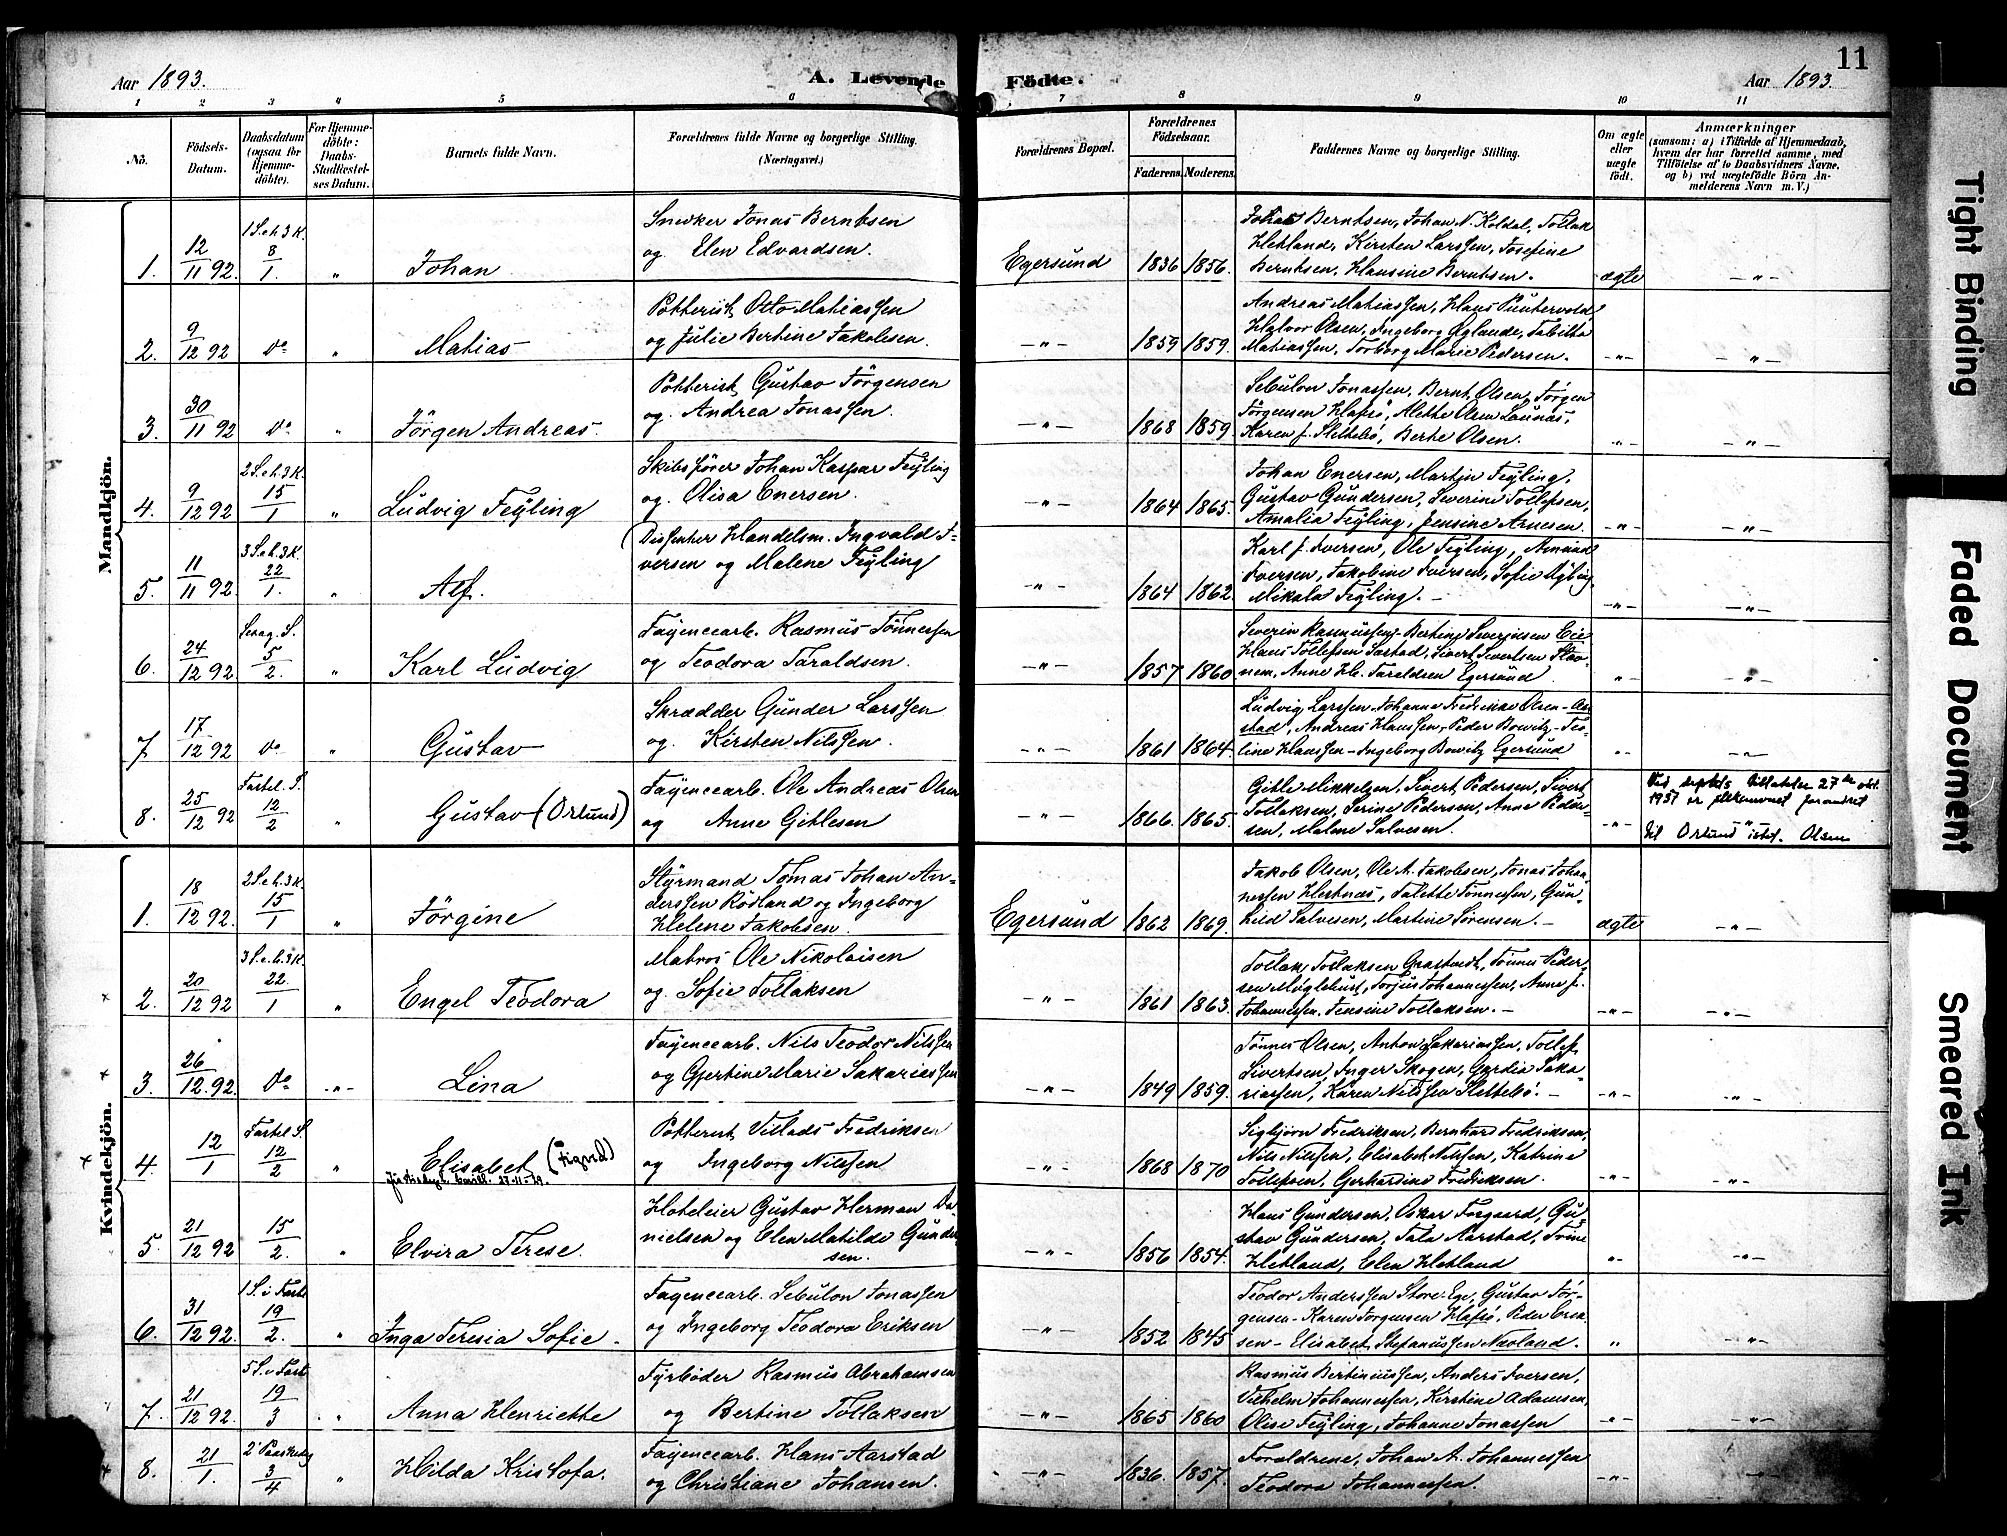 11
Aar 1893. A. Levende Födte. Aar 1893.
1 2 3 4 5 6 7 8 9 10 11
Nö.
Födsels-Datum.
Daabsdatum (ogsaa for Hjemmedöbte).
For Hjemmedöbte: Daabs-Stadfæstelses Datum.
Barnets fulde Navn.
Forældrenes fulde Navne og borgerlige Stilling. (Næringsvei.)
Forældrenes Bopæl.
Forældrenes Födselsaar.
Faderens. Moderens.
Faddernes Navne og borgerlige Stilling.
Om ægte eller uægte födt.
Anmærkninger
(saasom: a) i Tilfælde af Hjemmedaab, hvem der har forrettet samme, med Tilföielse af to Daabsvidners Navne, og b) ved uægtefödte Börn Anmelderens Navn m. V.)
Mandkjön.
1. 12/11 92. 1 S. e. h. 3 K. 8/1. " Johan
Snedker Jonas Berntsen
og Elen Edvardsen.
Egersund 1836 1856.
Johas Berntsen, Johan N. Koldal, Tollak
Hetland, Kirsten Larssen, Josefine
Berntsen, Hansine Berntsen. ægte -"-
2. 9/12 92 do " Matias
Pottarisk Otto Matiassen
og Julie Bertine Jakobsen.
-"- 1859 1859.
Andreas Matiassen, Hans Puntervold
Halvor Olsen, Ingeborg Øglænde, Tabitha
Matiassen, Torborg Marie Pedersen. -"- -"-
3. 30/11 92 do " Jörgen Andreas.
Gustav Jörgensen
og Andrea Jonassen.
-"- 1868 1859.
Sebulon Jonassen, Bernt Olsen, Jörgen
Jörgensen Hafsö, Alethe Olsen Launes,
Karen J. Slettebö, Berte Olsen. -"- -"-
4. 9/12 92 2 S. e. h. 3 K. 15/1 " Ludvig Feyling
Skibsförer Johan Kaspar Feyling
og Olisa Enersen.
-"- 1864 1865.
Johan Enersen, Martin Feyling,
Gustav Gundersen, Severine Tollefsen,
Amalia Feyling, Jensine Arnesen. -"- -"-
5. 11/11 92. 3 S. e. h. 3 K. 22/1. " Alf.
(Dissenter Handelsm. Ingvald I-
versen og Malene Feyling
-"- 1864 1862.
Karl J. Iversen, Ole Feyling, Amund
Iversen, Jakobine Iversen, Sofie
Mikala Feyling. -"- -"-
6. 24/12 92. Sexag. S. 5/2. " Karl Ludvig
Fayencearb. Rasmus Tönnessen
og Teodora Taraldsen.
-"- 1857 1860
Severin Rasmussen, Bertine Severinsen Eie
Hans Tollefsen Aarstad, Sivert Sivertsen Stav-
nem, Anne H. Taraldsen Egersund " -"-
7 17/12 92 do " Gustav
Skrædder Gunder Larssen
og Kirsten Nilssen.
-"- 1861 1864.
Ludvig Larssen-Johanne Fredrikke Olsen-Aar-
stad, Andreas Hanssen-Peder Bowitz-Teo-
line Hanssen-Ingeborg Bowitz Egersund -"- -"-
8. 25/12 92 Fastel. S. 12/2 " Gustav (Orlund)
Fayencearb. Ole Andreas Olsen
og Anne Gitlesen
-"- 1866. 1865.
Gitle Mikkelsen, Sivert Pedersen, Sivert
Tollaksen, Serine Pedersen, Anne Peder-
sen, Malene Salvesen. -"-
Ved dep'ts tillatelse 27de okt.
1937 er slektsnavnet forandret
til Orlund istf. Olsen
Kvindekjön.
1. 18/12 92. 2 S. e. h. 3 K. 15/1 " Jörgine
Styrmand Tomas Johan An-
derssen Rödland og Ingeborg
Helene Jakobsen.
Egersund 1862 1869.
Jakob Olsen, Ole A. Jakobsen, Jonas Johan-
nessen Hestnæs, Talette Tönnessen, Gun-
hild Salvesen, Martine Sörensen. ægte -"-
2. 20/12 92 3 S. e. h. 3 K. 22/1 " Engel Teodora
Matros Ole Nikolaisen
og Sofie Tollaksen
-"- 1861 1863.
Tollak Tollaksen, Tönnes Peder-
sen, Torjus Johannessen, Anne J.
Johannessen, Jensine Tollaksen. -"- -"-
3. 26/12. 92. do -"- Lina
Fayencearb. Nils Teodor Nilssen
og Gjertine Marie Sakariassen
-"- 1849 1859.
Tönnes Olsen, Anton Sakariassen, Tollef
Sivertsen, Inger Skogen, Gurdia Saka-
riassen, Karen Nilssen Slettebö. -"- -"-
4. 12/1 Fastel S. 12/2 " Elisabet (Tignd)
27-11-79.
Villads Fredriksen
og Ingeborg Nilssen
-"- 1868 1870
Sigbjörn Fredriksen, Bernhard Fredriksen,
Nils Nilssen, Elisabet Nilssen, Katrine
Tollefsen, Gerhardine Fredriksen. -"- -"-
5. 21/12 92 15/2. " Elvira Terese.
Hoteleier Gustav Herman Da-
nielsen og Elen Matilde Gunder-
sen.
-"- 1856 1854.
Hans Gundersen, Oskar Torgaard, Gu-
stav Gundersen, Tala Aarstad, Trine
Hetland, Elen Hetland -"- -"-
6. 31/12 92. 1 S. i Faste 19/2. " Inga Teresia Sofie.
Fayencearb. Sebulon Jonassen
og Ingeborg Teodora Eriksen
-"- 1852 1845
Teodor Anderssen Store-Ege, Gustav Jör-
gensen-Karen Jörgensen Hafsö, Peder Erik-
sen-Elisabet Stefanussen Nesland. " -"-
7. 21/12 92. 5 S. i Faste 19/3 " Anna Henriette
Fyrböder Rasmus Abrahamsen
og Bertine Tollaksen
-"- 1865 1860
Rasmus Bertiniussen, Anders Iversen,
Vilhelm Johannessen, Kirstine Adamsen,
Olise Feyling, Johanne Jonassen -"- -"-
8. 21/1. 2 Paaskedag 3/4 " Hilda Kristofa.
Fayencearb. Hans Aarstad
og Christiane Johansen.
-"- 1836. 1857.
Forældrene, Johan A. Johannessen
Teodora Johannessen. -"- -"-
Tight Binding
Faded Document
Smeared Ink